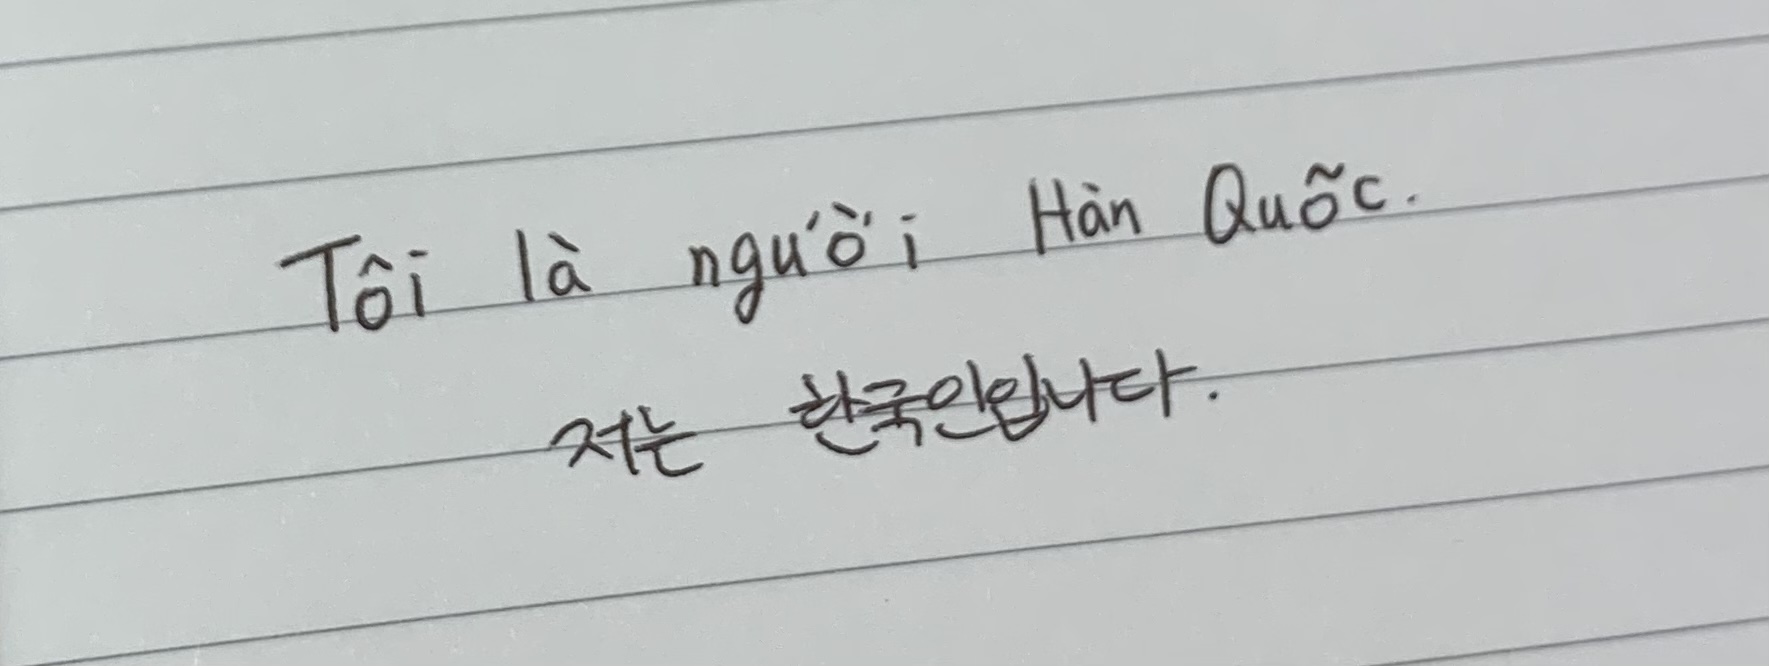 Tôi là người Hàn Quỗc.
저는 한국인입니다.